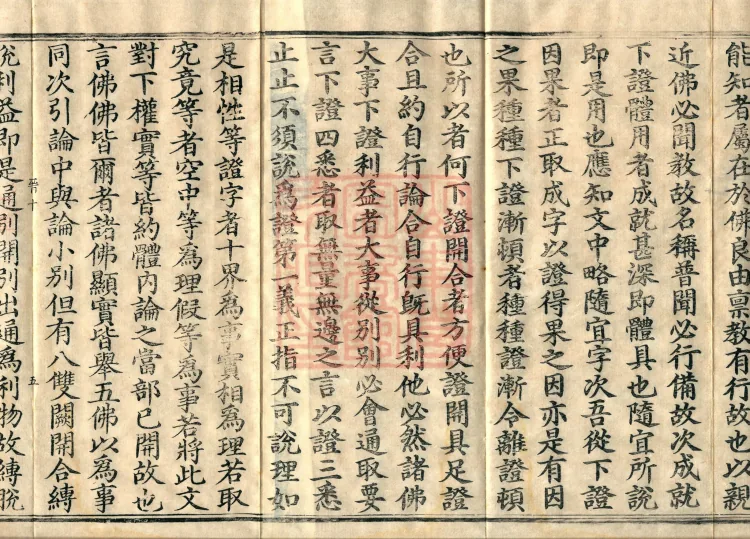 能知者屬在於佛良由禀教有行故也以親
近佛必聞教故名稱普聞必行備故次成就
下證體用者成就甚深即體具也隨宜所說
即是用也應知文中略隨宜字次吾從下證
因果者正取成字以證得果之因亦是有因
之果種種下證漸頓者種種證漸令離證頓
也所以者何下證開合者方便證開具足證
合且約自行論合自行旣具利他必然諸佛
大事下證利益者大事從別別必會通取要
言下證四悉者取無量無邊之言以證三悉
止止不須說爲證第一義正指不可說理如
是相性等證字者十界爲事實相爲理若取
究竟等者空中等爲理假等爲事若將此文
對下權實等皆約體內論之當部已開故也
言佛佛皆爾者諸佛顯實皆舉五佛以爲事
同次引論中與論小別但有八雙闕開合縛
五
脫利益即是通別開別出通爲利物故縛脫